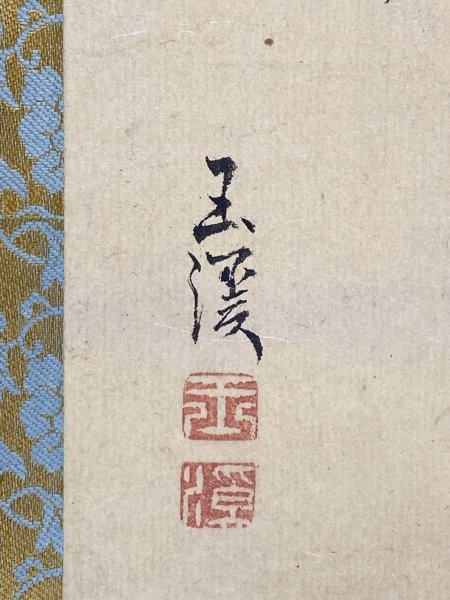 玉溪
玉
溪